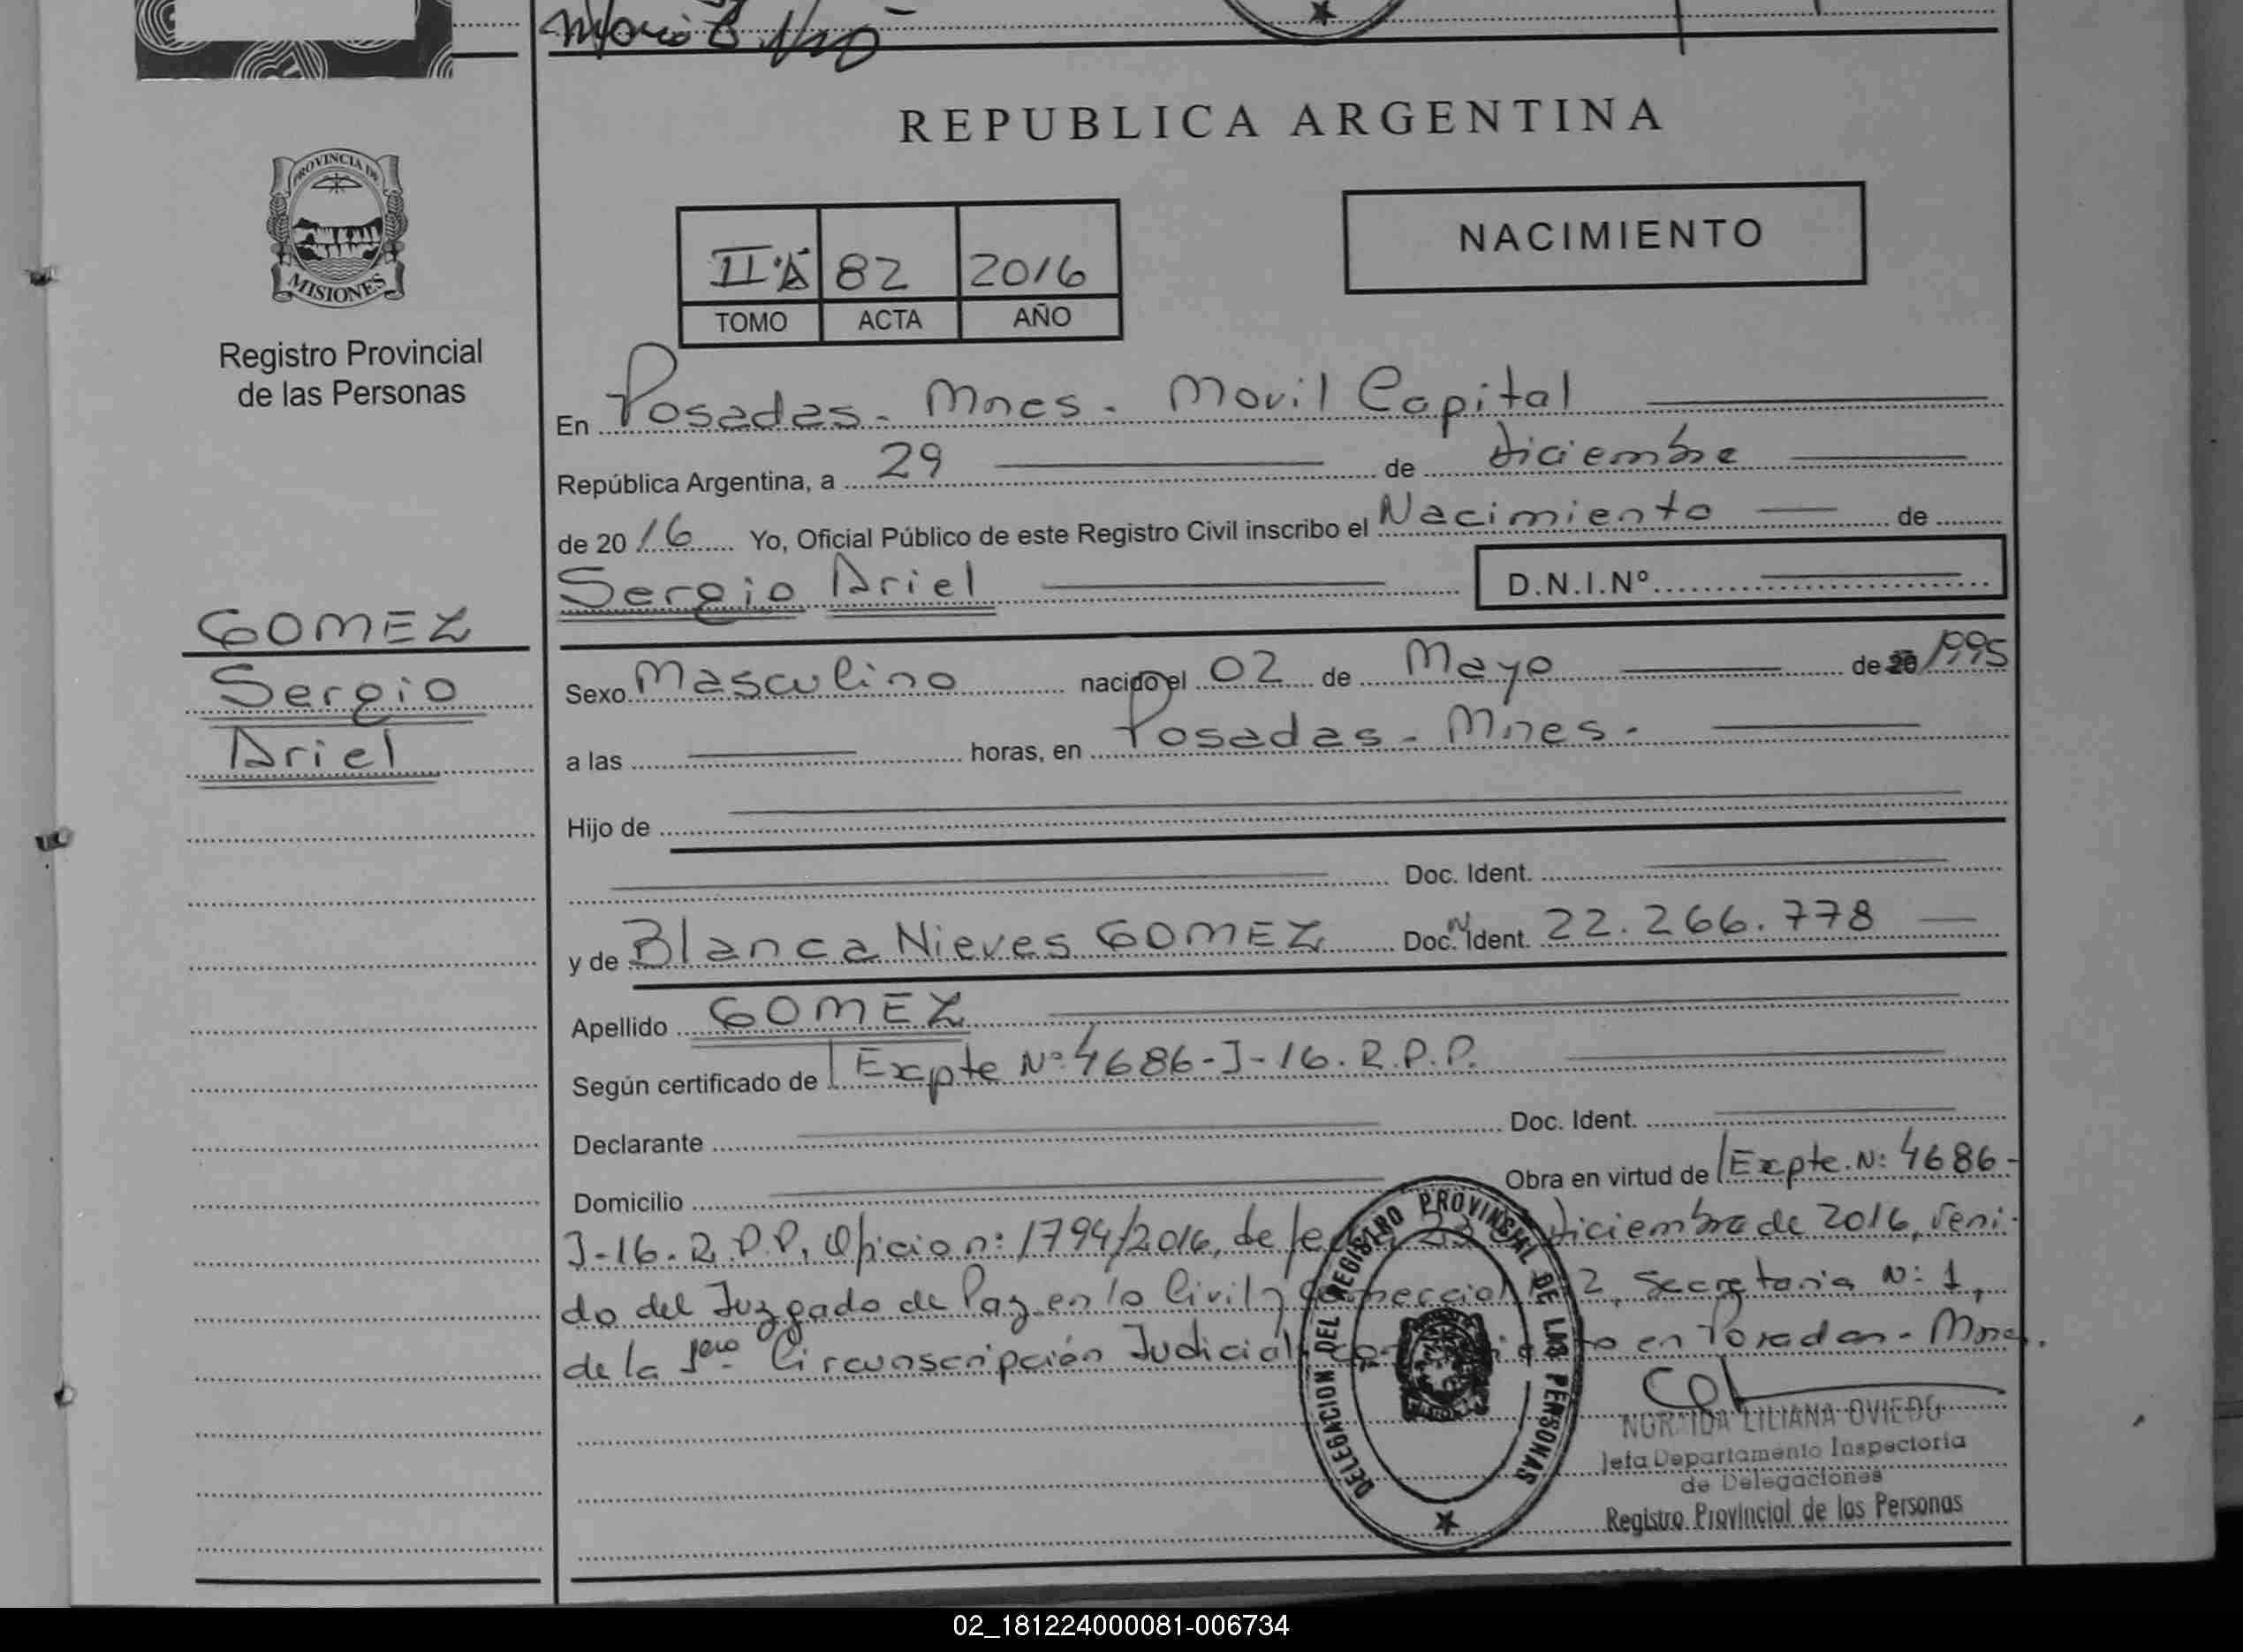 REPUBLICA ARGENTINA
PROVINCIA DE
MISIONES
Registro Provincial
de las Personas
NACIMIENTO
II·A 82 2016
TOMO ACTA AÑO
En Posadas - Mnes - Movil Capital
República Argentina, a 29 de diciembre
de 2016 Yo, Oficial Público de este Registro Civil inscribo el Nacimiento de
Sergio Ariel D.N.I.Nº
GOMEZ
Sergio
Ariel
Sexo Masculino nacido el 02 de Mayo de 1995
a las horas, en Posadas - Mnes -
Hijo de
Doc. Ident.
y de Blanca Nieves GOMEZ Doc. Ident. 22.266.778
Apellido GOMEZ
Según certificado de Expte Nº 4686-J-16. R.P.P.
Declarante Doc. Ident.
Domicilio Obra en virtud de Expte. N: 4686-
J-16. R.P.P, Oficio n: 1794/2016, de 23 diciembre de 2016, veni-
do del Juzgado de Paz en lo Civil y Comercial 2, Secretaria N: 1,
de la 1era Circunscripción Judicial en Posadas - Mnes.
DELEGACION DEL REGISTRO PROVINCIAL DE LAS PERSONAS
LILIANA OVIEDO
Jefa Departamento Inspectoria
de Delegaciones
Registro Provincial de las Personas
02_181224000081-006734